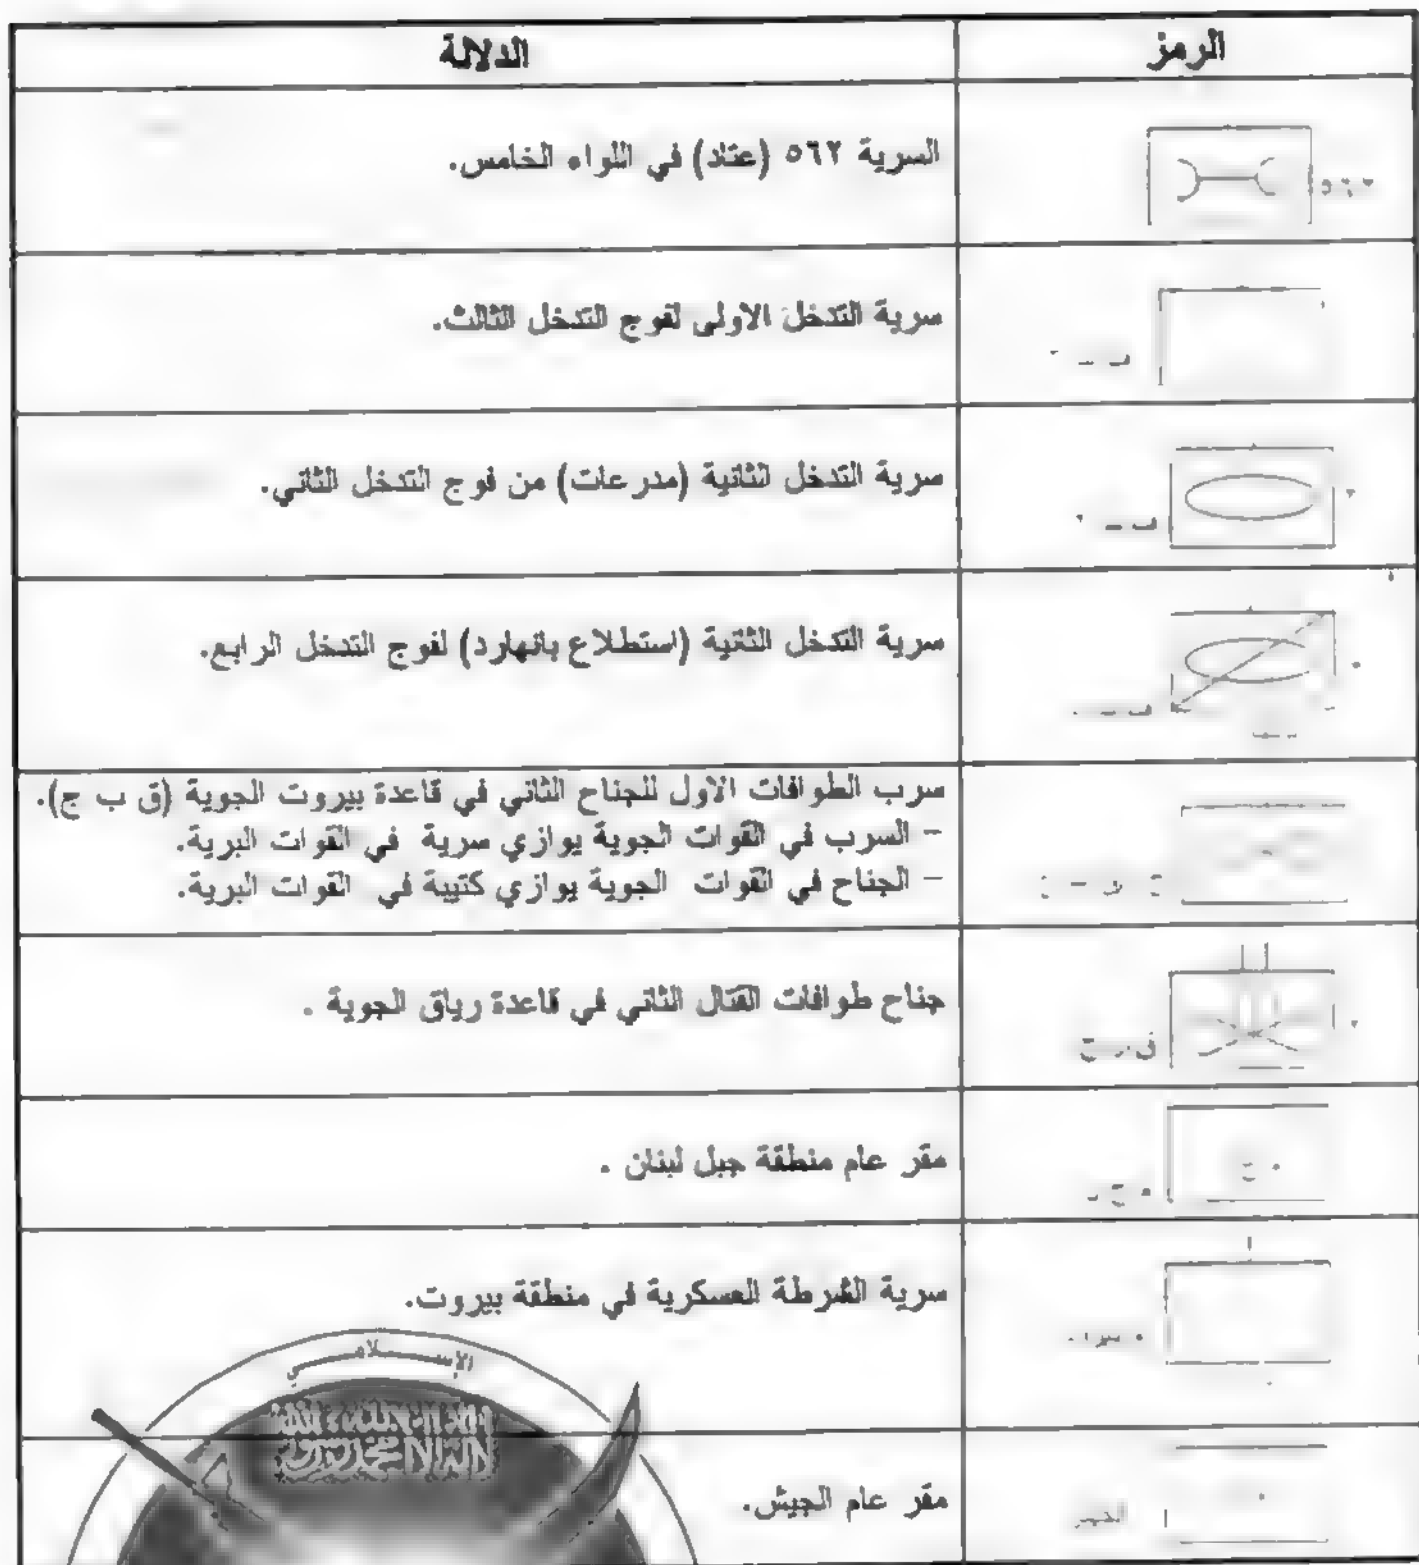 الرمز
الدلالة
٥٦٢
السرية ٥٦٢ (عتاد) في اللواء الخامس.
سرية التدخل الاولى لفوج التدخل الثالث.
سرية التدخل الثانية (مدرعات) من فوج التدخل الثاني.
سرية التدخل الثانية (استطلاع بانهارد) لفوج التدخل الرابع.
سرب الطوافات الاول للجناح الثاني في قاعدة بيروت الجوية (ق ب ج).
- السرب في القوات الجوية يوازي سرية في القوات البرية.
- الجناح في القوات الجوية يوازي كتيبة في القوات البرية.
ق ر ج
جناح طوافات القتال الثاني في قاعدة رياق الجوية .
مقر عام منطقة جبل لبنان .
سرية الشرطة العسكرية في منطقة بيروت.
مقر عام الجيش.